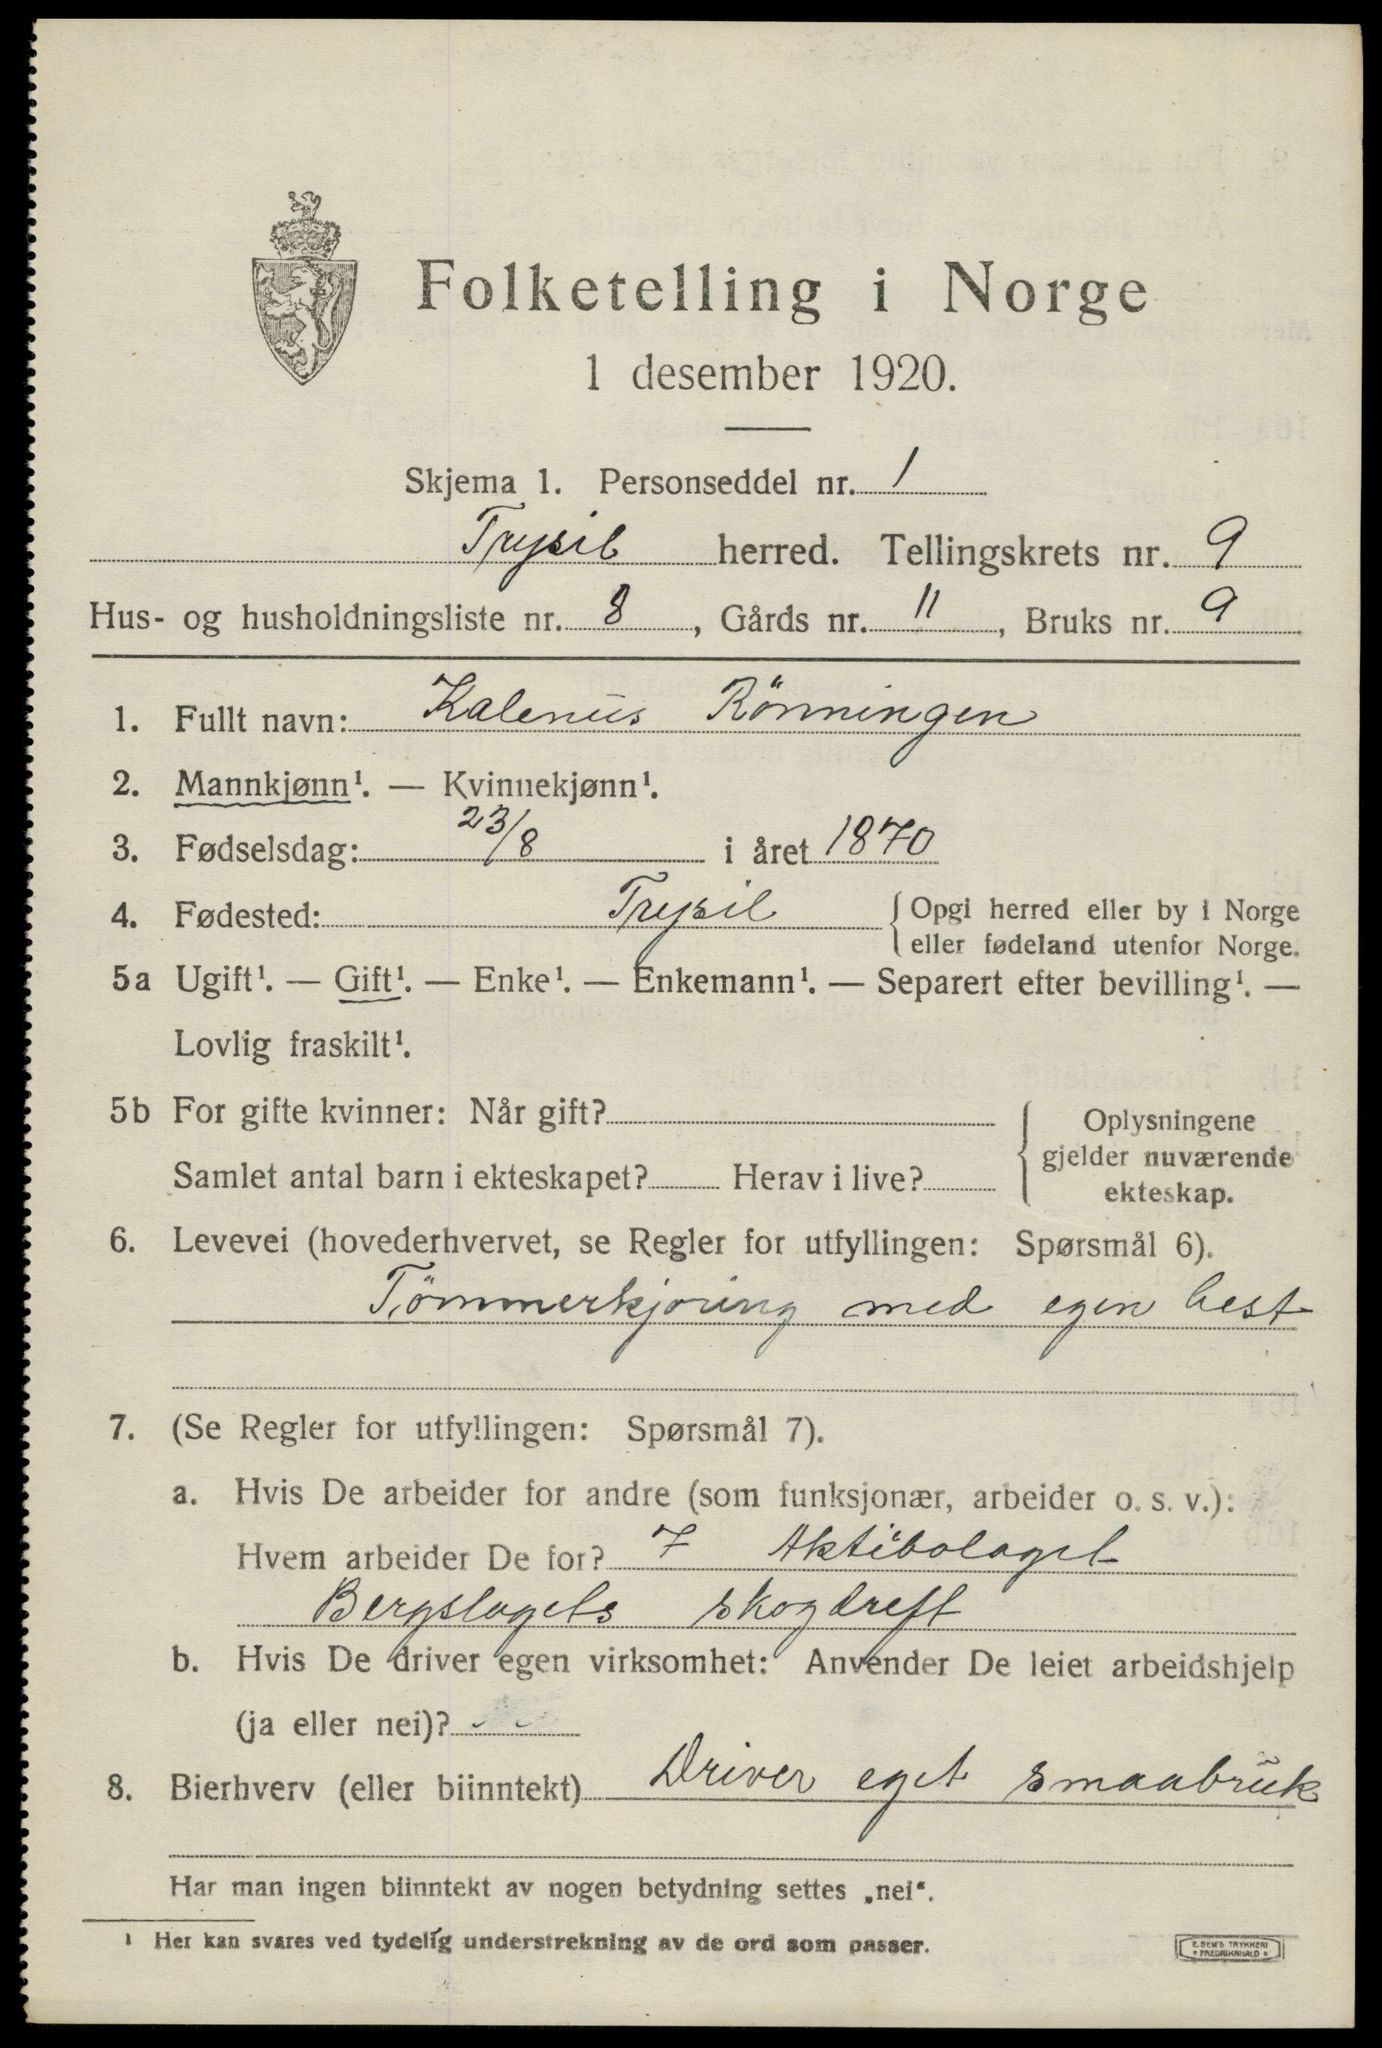 Folketelling i Norge
1 desember 1920.
Skjema 1. Personseddel nr. 1
Trysil herred. Tellingskrets nr. 9
Hus- og husholdningsliste nr. 8, Gårds nr. 11, Bruks nr. 9
1. Fullt navn: Kalenus Rönningen
2. Mannkjønn¹. — Kvinnekjønn¹.
3. Fødselsdag: 23/8 i året 1870
4. Fødested: Trysil { Opgi herred eller by i Norge
eller fødeland utenfor Norge.
5a Ugift¹. — Gift¹. — Enke¹. — Enkemann¹. — Separert efter bevilling¹. —
Lovlig fraskilt¹.
5b For gifte kvinner: Når gift? { Oplysningene
gjelder nuværende
Samlet antal barn i ekteskapet? Herav i live?
ekteskap.
6. Levevei (hovederhvervet, se Regler for utfyllingen: Spørsmål 6).
Tömmerkjöring med egen hest
7. (Se Regler for utfyllingen: Spørsmål 7).
a. Hvis De arbeider for andre (som funksjonær, arbeider o. s. v.):
Hvem arbeider De for? Aktiebolaget
Bergslagets skogdreft
b. Hvis De driver egen virksomhet: Anvender De leiet arbeidshjelp
(ja eller nei)?
8. Bierhverv (eller biinntekt) Driver eget smaabruk
Har man ingen biinntekt av nogen betydning settes „nei“.
¹ Her kan svares ved tydelig understrekning av de ord som passer.
E. SEM'S TRYKKERI
• FREDRIKSHALD •